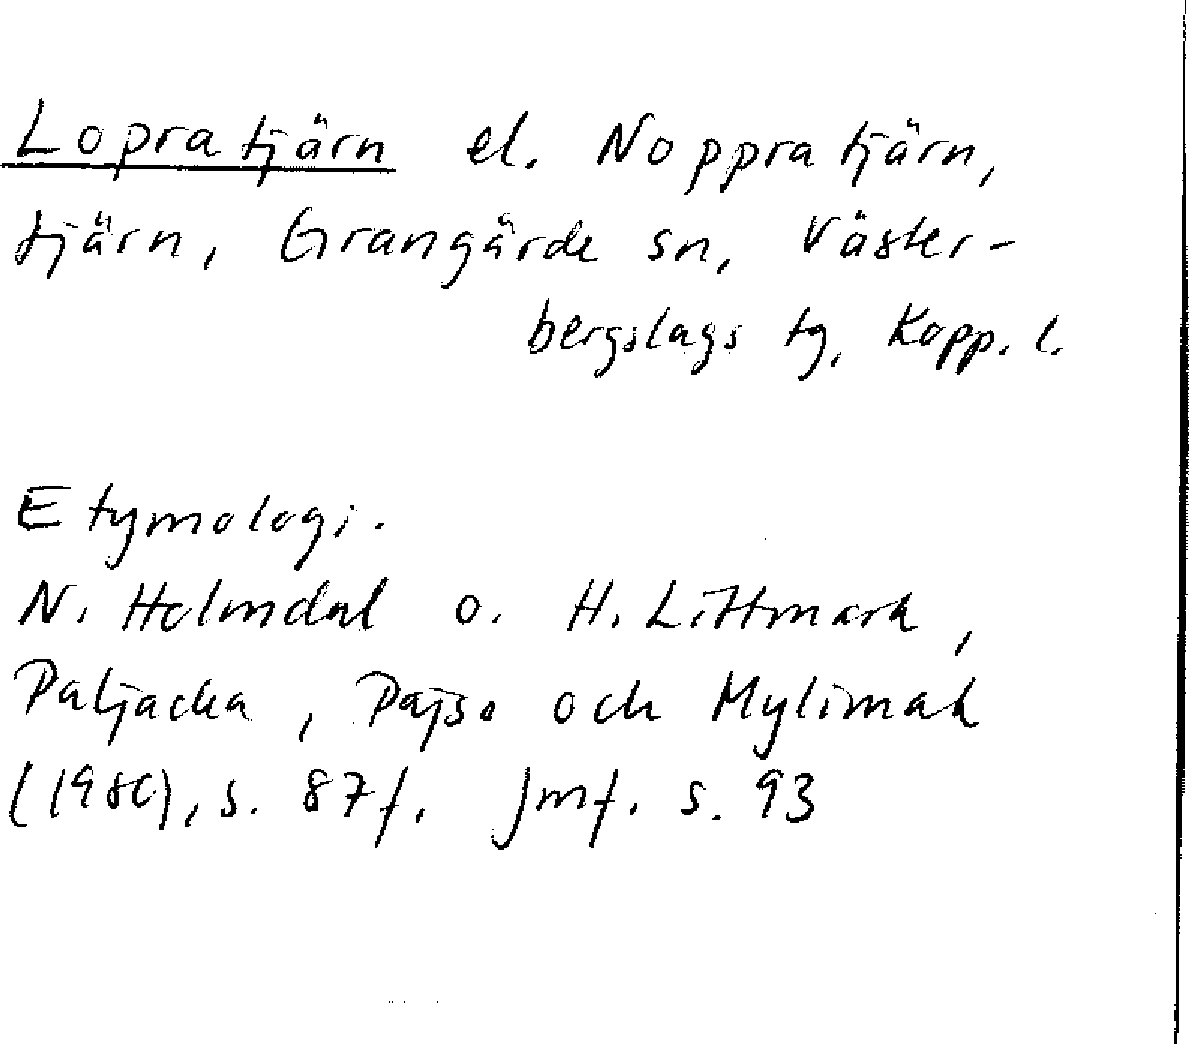 Lopratjärn el. Noppratjärn,
tjärn, Grangärde sn, Väster-
bergslags tg, Kopp. l.
Etymologi.
N. Holmdal o. H. Littmark,
Paljacka, Pajso och Mylimak
(1980), s. 87f. Jmf. s. 93